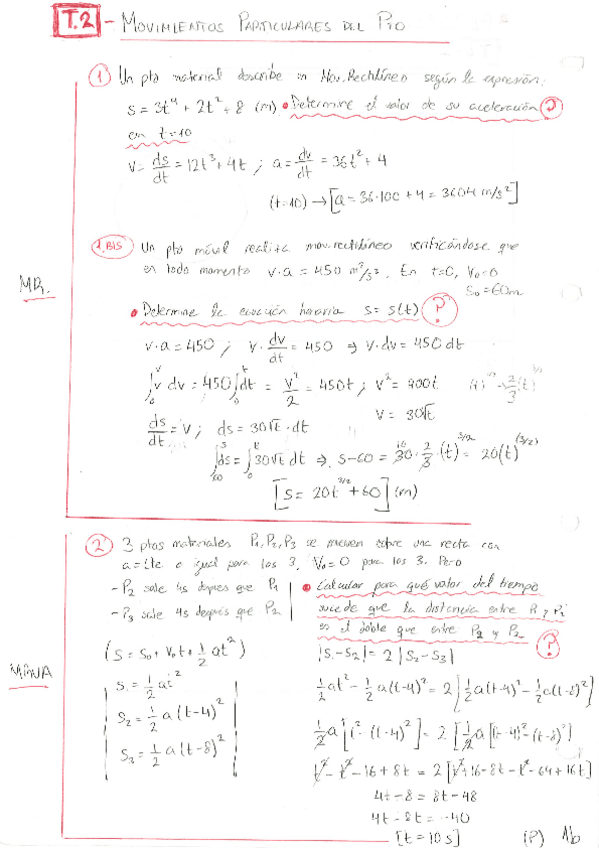 T.2 - MOVIMIENTOS PARTICULARES DEL PTO
① Un pto material describe un Mov. Rectilíneo según la expresión:
s = 3t⁴ + 2t² + 8 (m). • Determine el valor de su aceleración ?
en t=10
v = ds/dt = 12t³ + 4t ; a = dv/dt = 36t² + 4
(t=10) → [a = 36·100 + 4 = 3604 m/s²]
1.BIS Un pto móvil realiza mov. rectilíneo verificándose que
en todo momento v·a = 450 m²/s³. En t=0, V₀=0
S₀=60m
MR.
• Determine la ecuación horaria s = s(t) ?
v·a = 450 ; v· dv/dt = 450 ⇒ v·dv = 450 dt
∫₀ᵛ v dv = 450 ∫₀ᵗ dt = v²/2 = 450t ; v² = 900t
v = 30√t
ds/dt = v ; ds = 30√t · dt
∫₆₀ˢ ds = ∫₀ᵗ 30√t dt ⇒ s-60 = 30 · 2/3 · (t)^3/2 = 20(t)^(3/2)
[s = 20t^3/2 + 60] (m)
② 3 ptos materiales P₁, P₂, P₃ se mueven sobre una recta con
a = cte e igual para los 3. V₀=0 para los 3. Pero
- P₂ sale 4s después que P₁
- P₃ sale 4s después que P₂
• Calcular para qué valor del tiempo
sucede que la distancia entre P₁ y P₂
es el doble que entre P₂ y P₃ ?
(S = S₀ + V₀t + 1/2 at²)
S₁ = 1/2 at²
S₂ = 1/2 a (t-4)²
S₃ = 1/2 a (t-8)²
|S₁-S₂| = 2 |S₂-S₃|
1/2 at² - 1/2 a(t-4)² = 2 [1/2 a(t-4)² - 1/2 a(t-8)²]
1/2 a [t² - (t-4)²] = 2 [1/2 a [(t-4)² - (t-8)²]
t² - t² - 16 + 8t = 2 [t² + 16 - 8t - t² - 64 + 16t]
4t - 8 = 8t - 48
4t - 8t = -40
[t = 10s]
(P) 1b